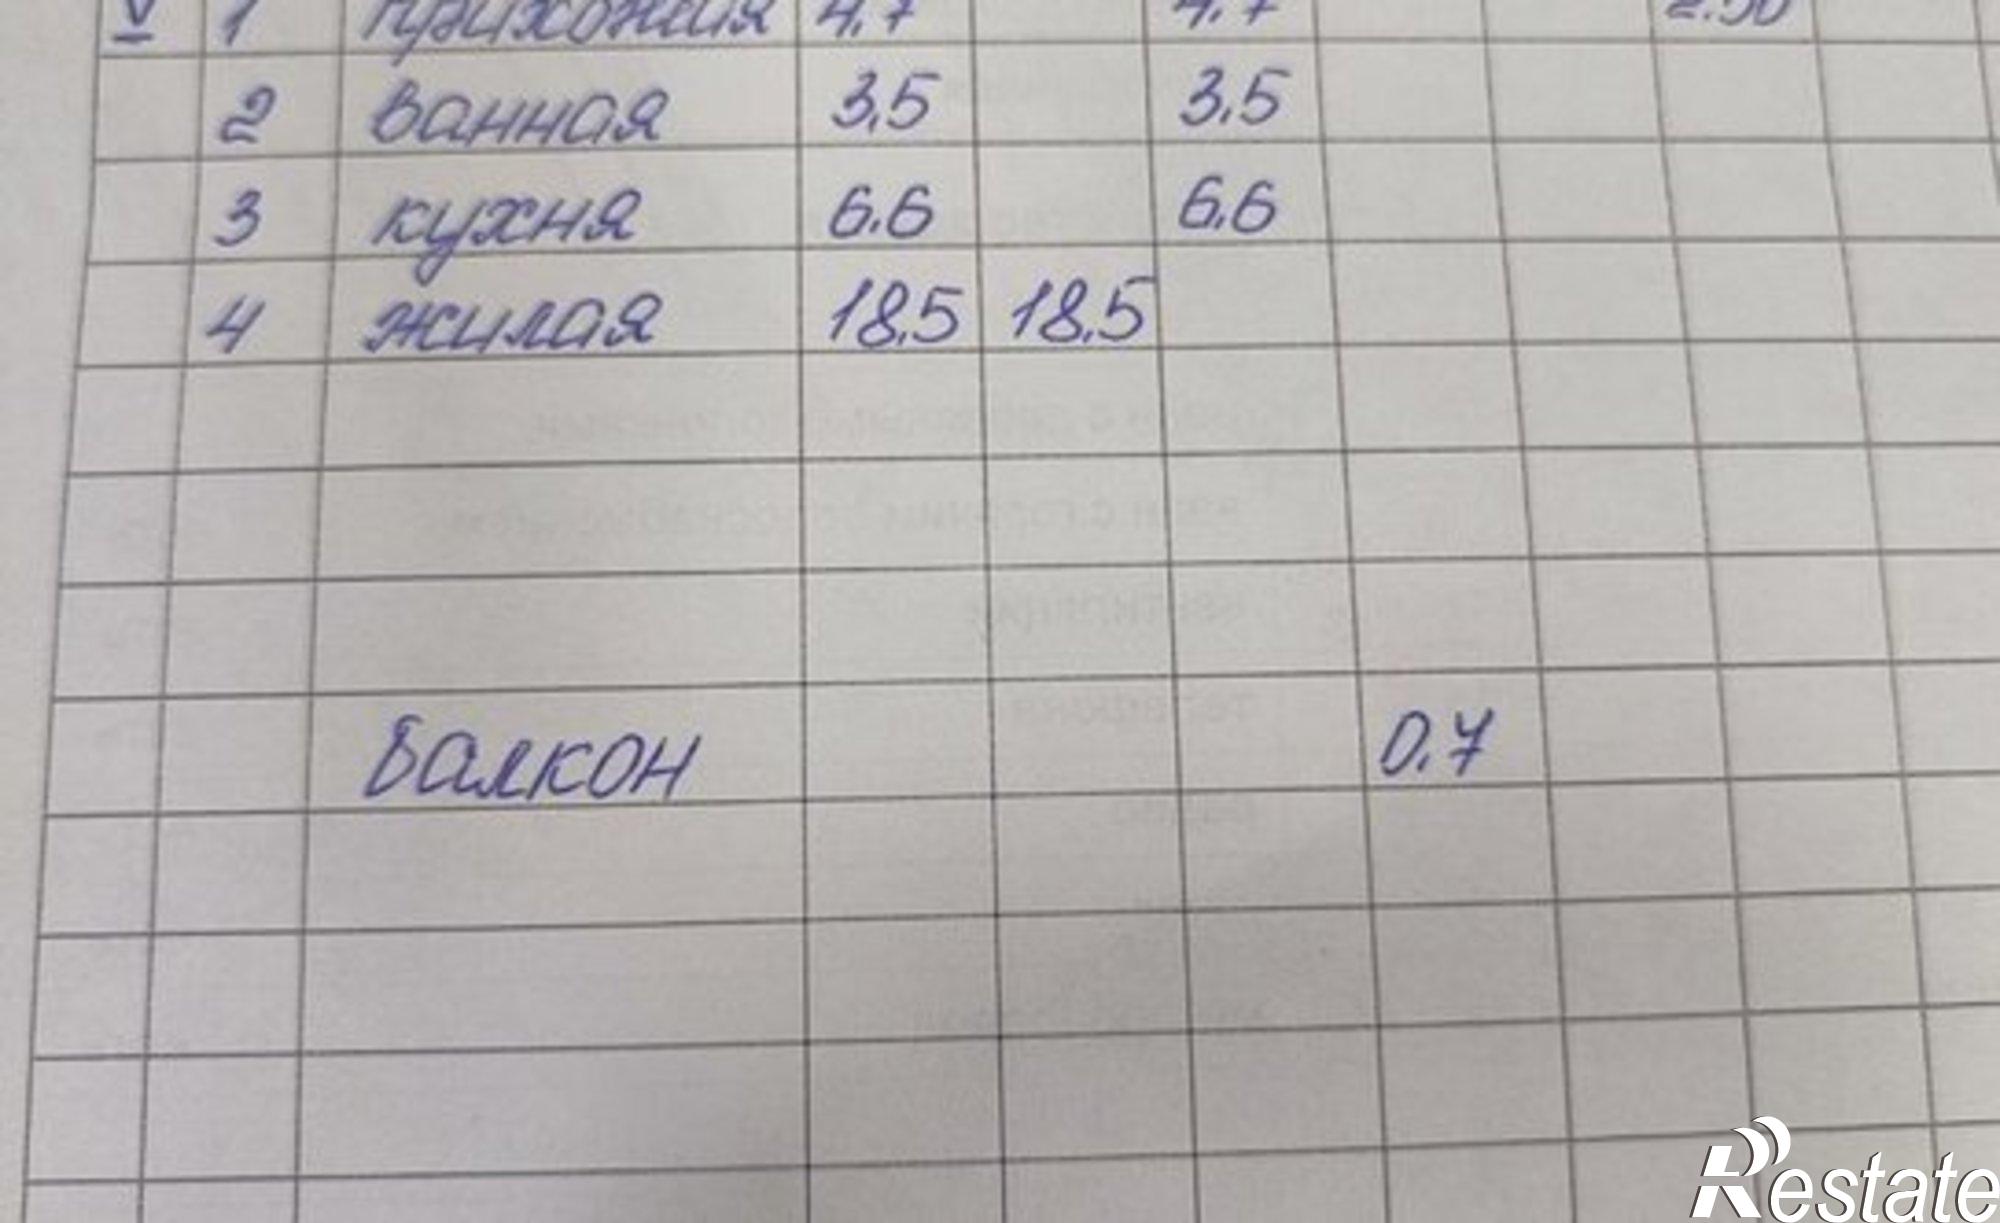 V 1 прихожая 4.7 4.7 2.50
2 ванная 3.5 3.5
3 кухня 6.6 6.6
4 жилая 18.5 18.5
балкон 0.7
Restate